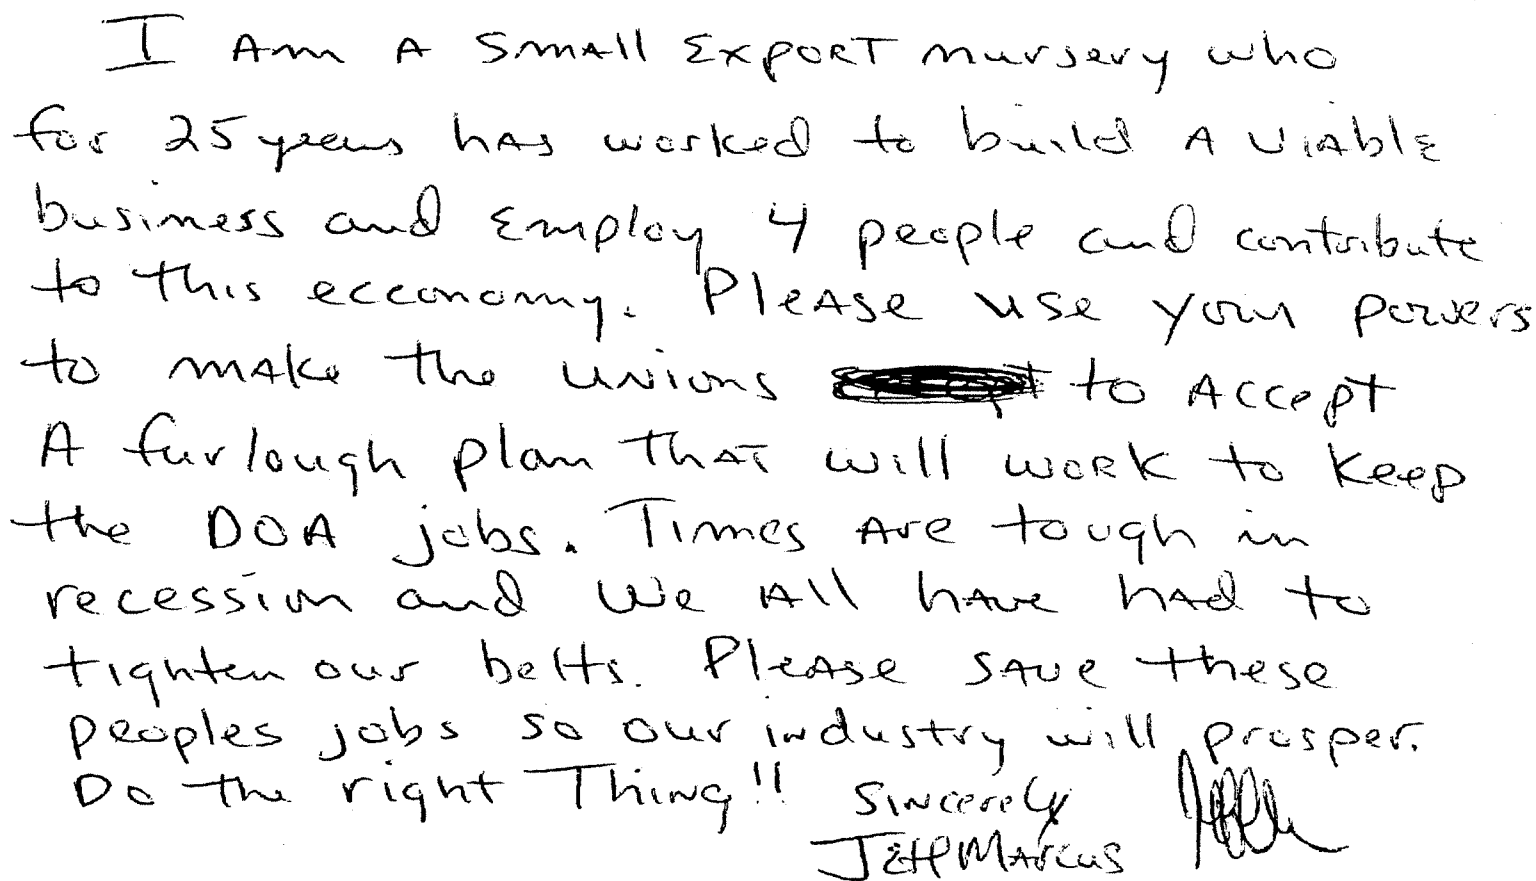 I Am A SmAll ExpoRT nursery who
for 25 years hAs worked to build A ViAblE
business and Employ 4 people and contribute
to this ecconomy. PleAse use your powers
to mAke the UNiONs to Accept
A furlough plan ThAT will woRK to Keep
the DOA jobs. Times Are tough in
recession and We All hAve hAd to
tighten our belts. PleAse sAve these
peoples jobs so our iNdustry will prosper.
Do the right Thing!! SiNcerely
JEff MArcus